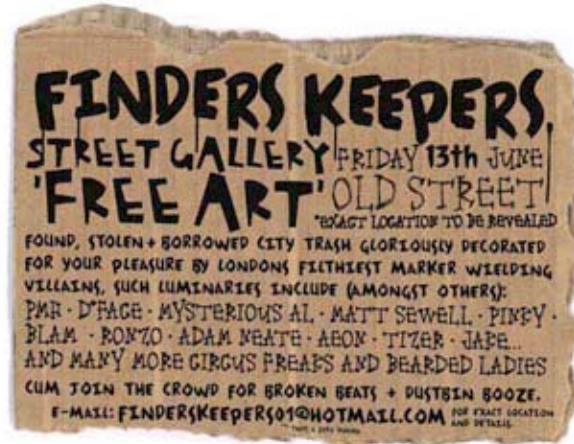 FINDERS KEEPERS.
STREET GALLERY FRIDAY 13th JUNE
'FREE ART' OLD STREET
*EXACT LOCATION TO BE REVEALED
FOUND, STOLEN + BORROWED CITY TRASH GLORIOUSLY DECORATED
FOR YOUR PLEASURE BY LONDONS FILTHIEST MARKER WIELDING
VILLAINS, SUCH LUMINARIES INCLUDE (AMONGST OTHERS):
PMH · D*FACE · MYSTERIOUS AL · MATT SEWELL · PINKY ·
BLAM · RONZO · ADAM NEATE · AEON · TIZER · JAKE...
AND MANY MORE CIRCUS FREAKS AND BEARDED LADIES
CUM JOIN THE CROWD FOR BROKEN BEATS + DUSTBIN BOOZE.
E-MAIL: FINDERSKEEPERS01@HOTMAIL.COM FOR EXACT LOCATION
AND DETAILS.